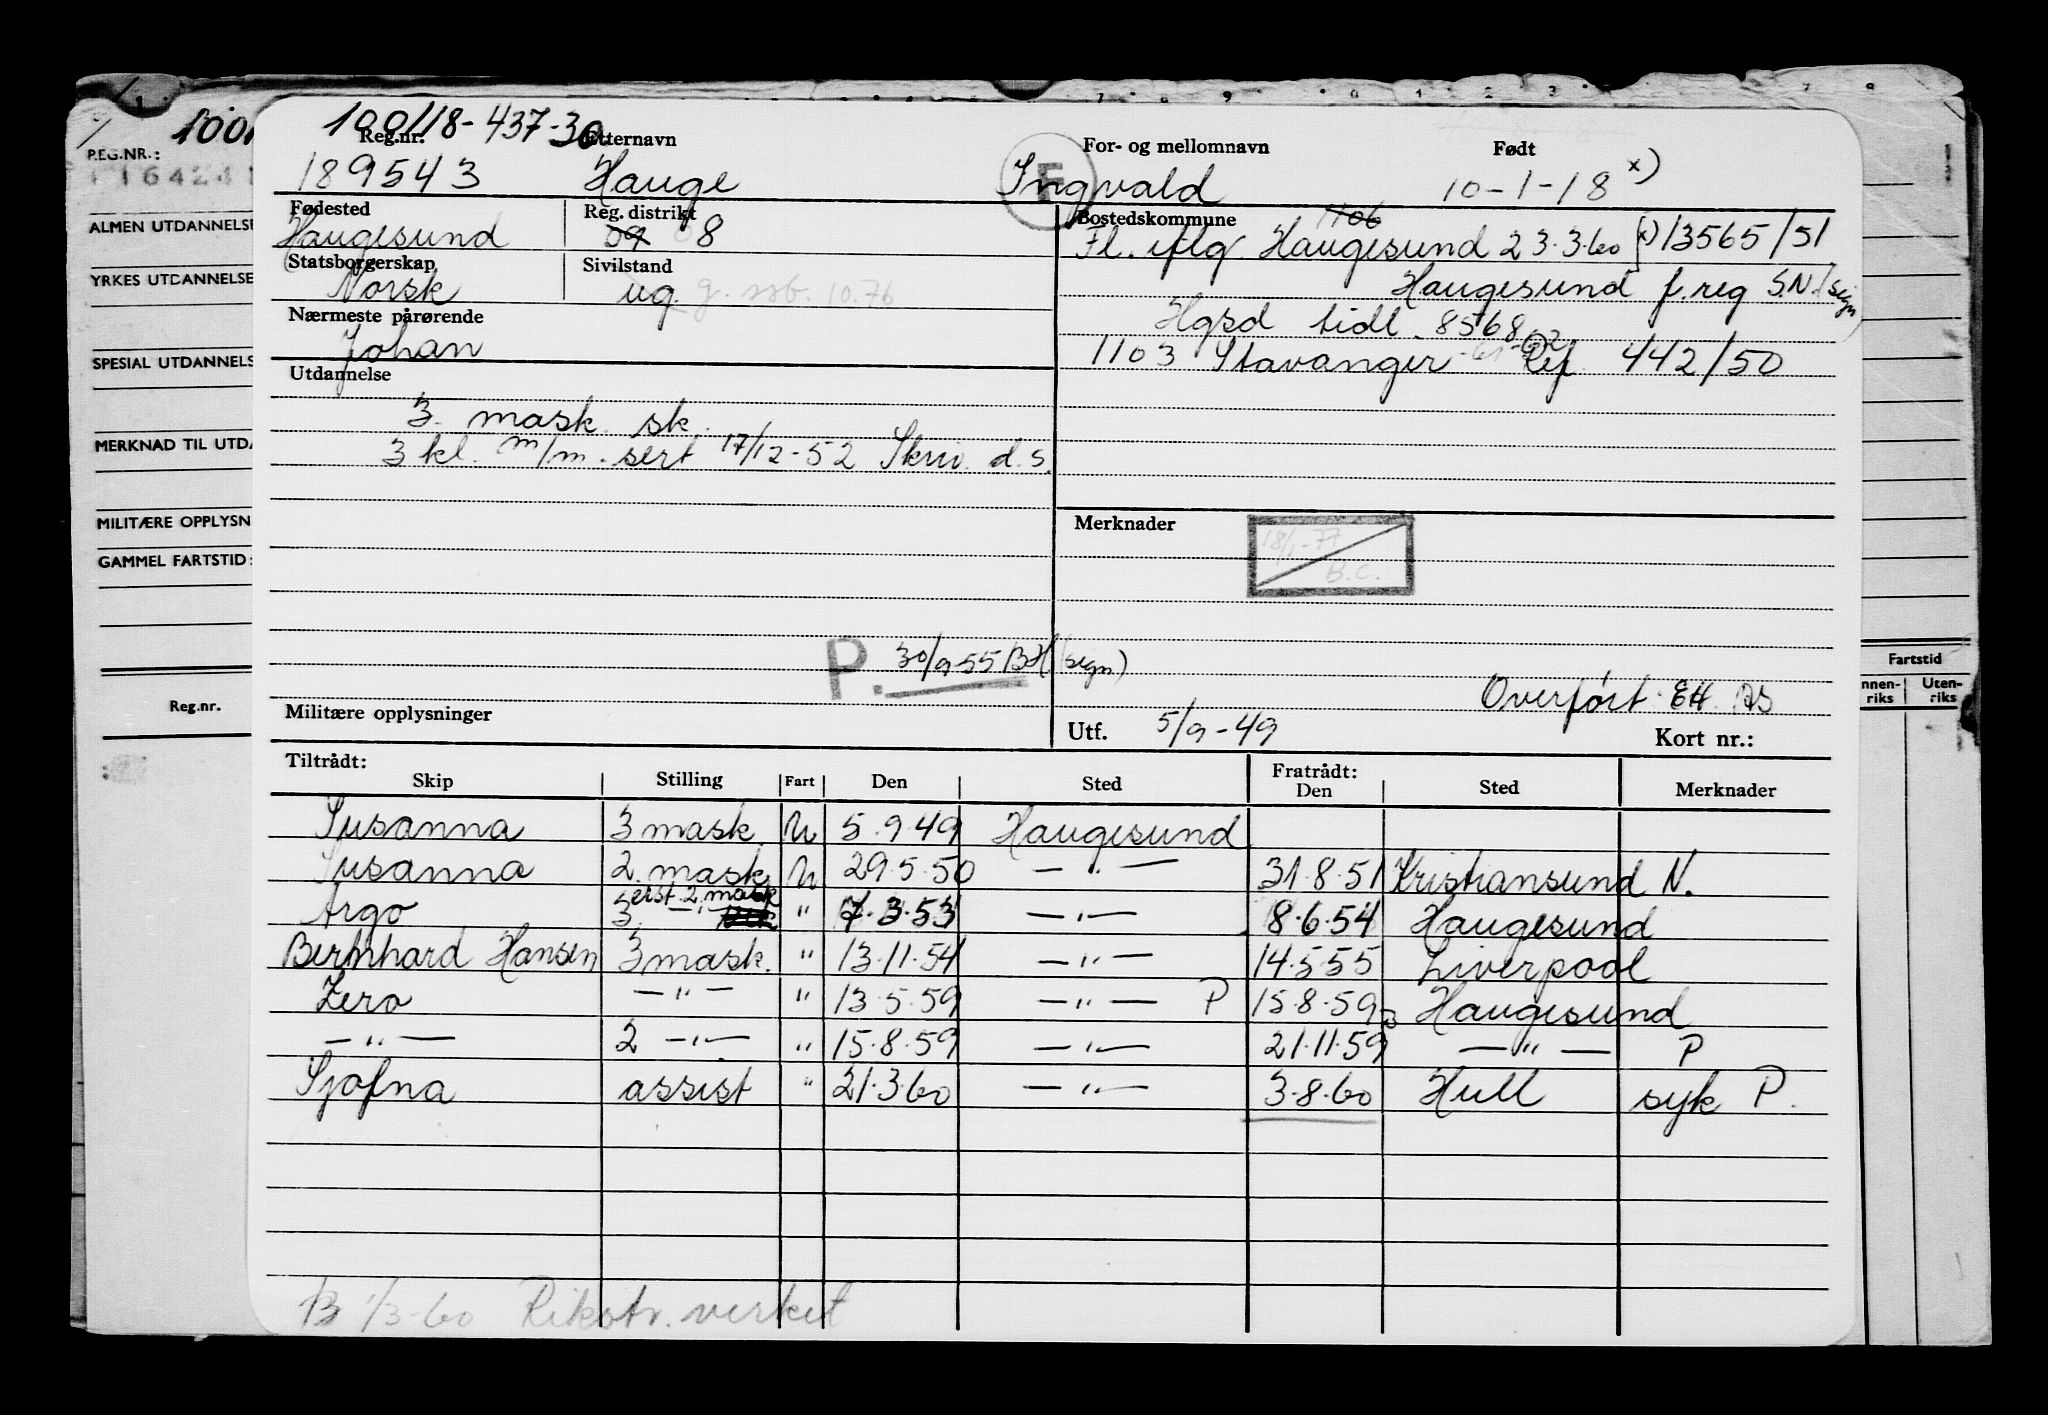 100118-437-30
Reg.nr. Etternavn For- og mellomnavn Født
189543 Hauge Ingvald 10-1-18 x)
F
Fødested Reg. distrikt Bostedskommune 1106
Haugesund 09 08 Fl. iflg. Haugesund 23.3.60 x) 13565/51
Statsborgerskap Sivilstand Haugesund f. reg S.N. (sign)
Norsk ug. g. ssb. 10.76
Nærmeste pårørende Hgsd tidl. 8568
Johan 1103 Stavanger 442/50
Utdannelse
3. mask. sk.
3 kl. m/m. sert 17/12-52 Skriv. d.s.
Merknader
18/1-77
B.C.
P. 30/9-55 BH (sign.)
Overført EH
Militære opplysninger Utf. 5/9-49 Kort nr.:
Tiltrådt: Fratrådt:
Skip Stilling Fart Den Sted Den Sted Merknader
Susanna 3 mask. U 5.9.49 Haugesund
Susanna 2. mask U 29.5.50 — " — 31.8.51 Kristiansund N.
erst. 2 mask
Argo 3. — " — " 7.3.53 — " — 8.6.54 Haugesund
Bernhard Hansen 3 mask. " 13.11.54 — " — 14.5.55 Liverpool
Zero — " — " 13.5.59 — " — P 15.8.59 Haugesund
— " — 2 — " — " 15.8.59 — " — 21.11.59 — " — P
Sjofna assist " 21.3.60 — " — 3.8.60 Hull syk P.
B 1/3-60 Rikstr. verket
1001
REG.NR.:
116424
ALMEN UTDANNELSE
YRKES UTDANNELSE
SPESIAL UTDANNELS
MERKNAD TIL UTDA
MILITÆRE OPPLYSN
GAMMEL FARTSTID:
Reg.nr.
Fartstid
nnen- Uten-
riks riks